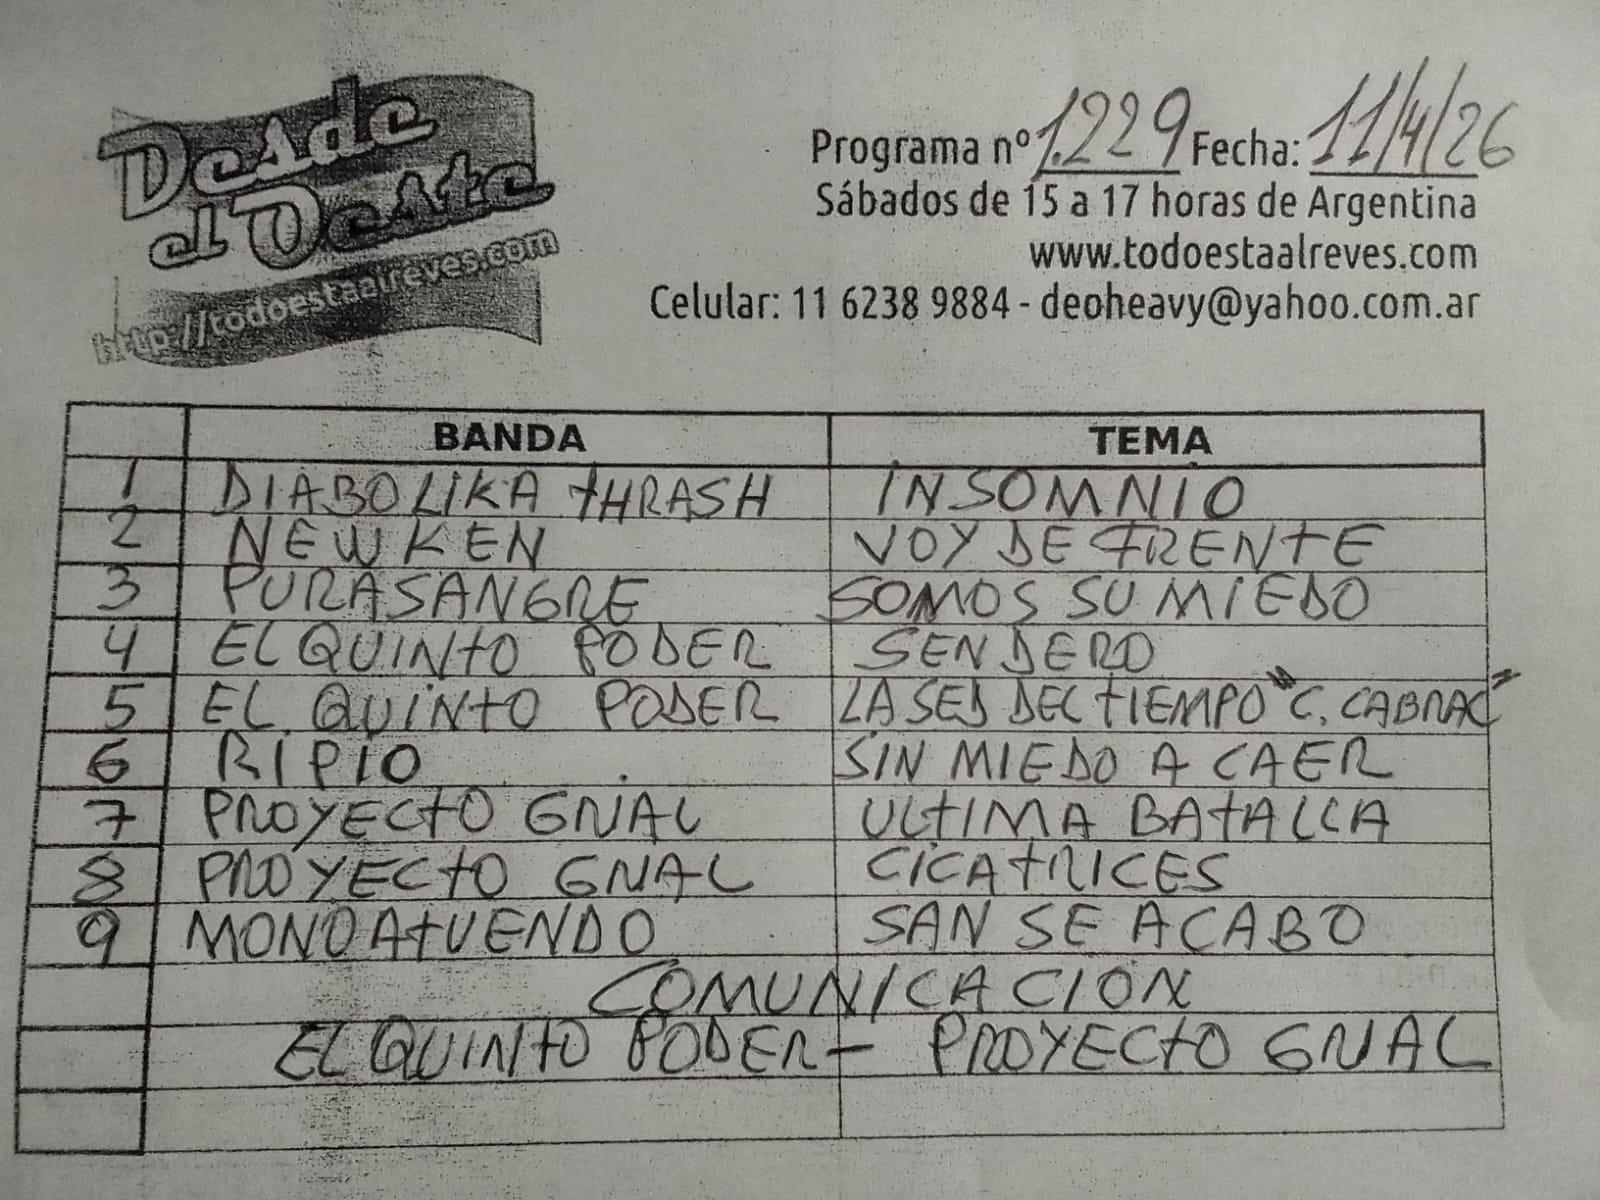 Desde
el Oeste
http://todoestaalreves.com
Programa nº 1.229 Fecha: 11/4/26
Sábados de 15 a 17 horas de Argentina
www.todoestaalreves.com
Celular: 11 6238 9884 - deoheavy@yahoo.com.ar
BANDA TEMA
1 DIABOLIKA THRASH INSOMNIO
2 NEWKEN VOY DE FRENTE
3 PURASANGRE SOMOS SU MIEDO
4 EL QUINTO PODER SENDERO
5 EL QUINTO PODER LA SED DEL TIEMPO "C. CABRAL"
6 RIPIO SIN MIEDO A CAER
7 PROYECTO GNAL ULTIMA BATALLA
8 PROYECTO GNAL CICATRICES
9 MONOATUENDO SAN SE ACABO
COMUNICACION
EL QUINTO PODER - PROYECTO GNAL